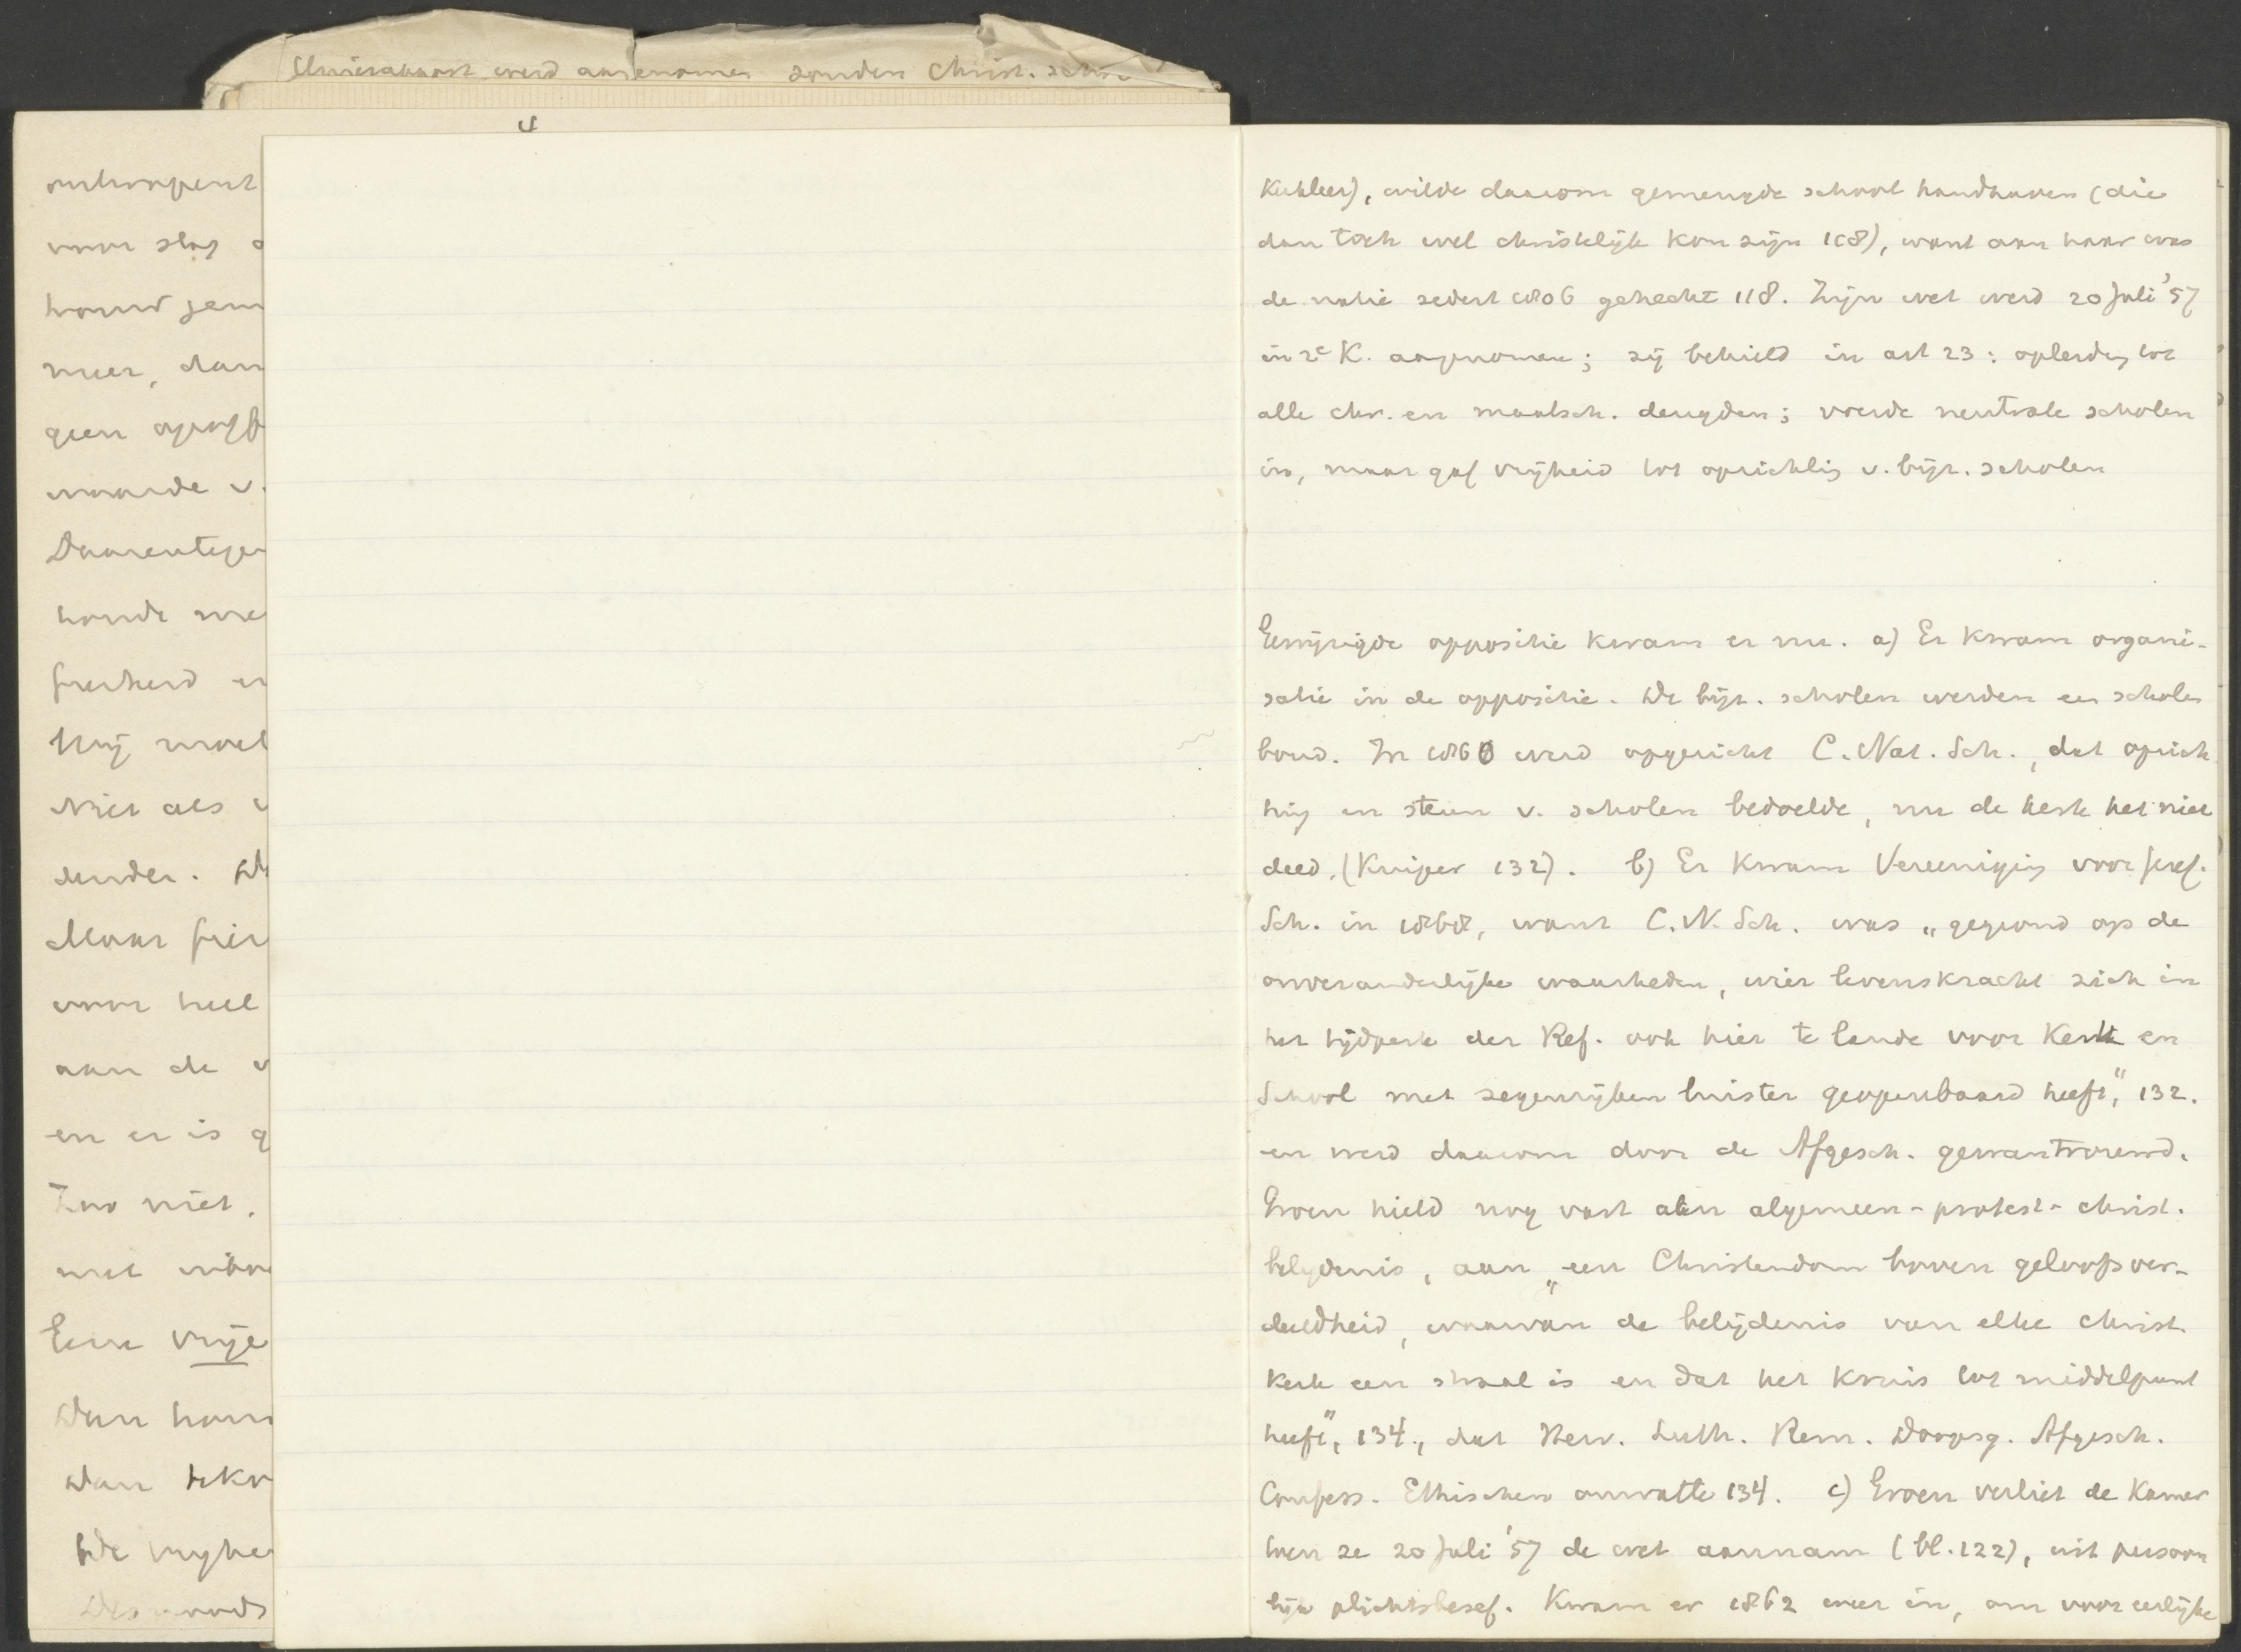 werd aangenomen zonder Christ.
4
voor slag
meer, dan
geen
waarde v.
Daarentegen
Hij moet
Niet als
Maar
voor heel
aan de v
en er is g
Zoo niet.
met
Eene vrije
Dan
De vryhe
Kuhler), wilde daarom gemengde school handhaven (die
dan toch wel christelijk kon zijn 108), want aan haar was
de natie sedert 1806 gehecht 118. Zijn wet werd 20 Juli '57
in 2e K. aangenomen; zij behield in art 23: opleiding tot
alle chr. en maatsch. deugden; voerde neutrale scholen
in, maar gaf vrijheid tot oprichting v. bijz. scholen
oppositie kwam er nu. a) Er kwam organi-
satie in de oppositie. De bijz. scholen werden een scholen
bond. In 1860 werd opgericht C. Nat. Sch., dat oprich
ting en steun v. scholen bedoelde, nu de kerk het niet
deed. (Kuiper 132). b) Er kwam Vereeniging voor Geref.
Sch. in 1868, want C. N. Sch. was „gegrond op de
onveranderlijke waarheden, wier levenskracht zich in
het tijdperk der Ref. ook hier te lande voor Kerk en
School met zegenrijken luister geopenbaard heeft," 132.
en werd daarom door de Afgesch. gewantrouwd.
Groen hield nog vast aan algemeen-protest-christ.
belydenis, aan „een Christendom boven geloofsver-
deeldheid, waarvan de belijdenis van elke christ.
Kerk een straal is en dat het kruis tot middelpunt
heeft", 134., dat Herv. Luth. Rem. Doopsg. Afgesch.
Confess. Ethischen omvatte 134. c) Groen verliet de Kamer
toen ze 20 Juli '57 de wet aannam (bl. 122), uit persoon
lijk plichtsbesef. Kwam er 1862 weer in, om voor eerlijke